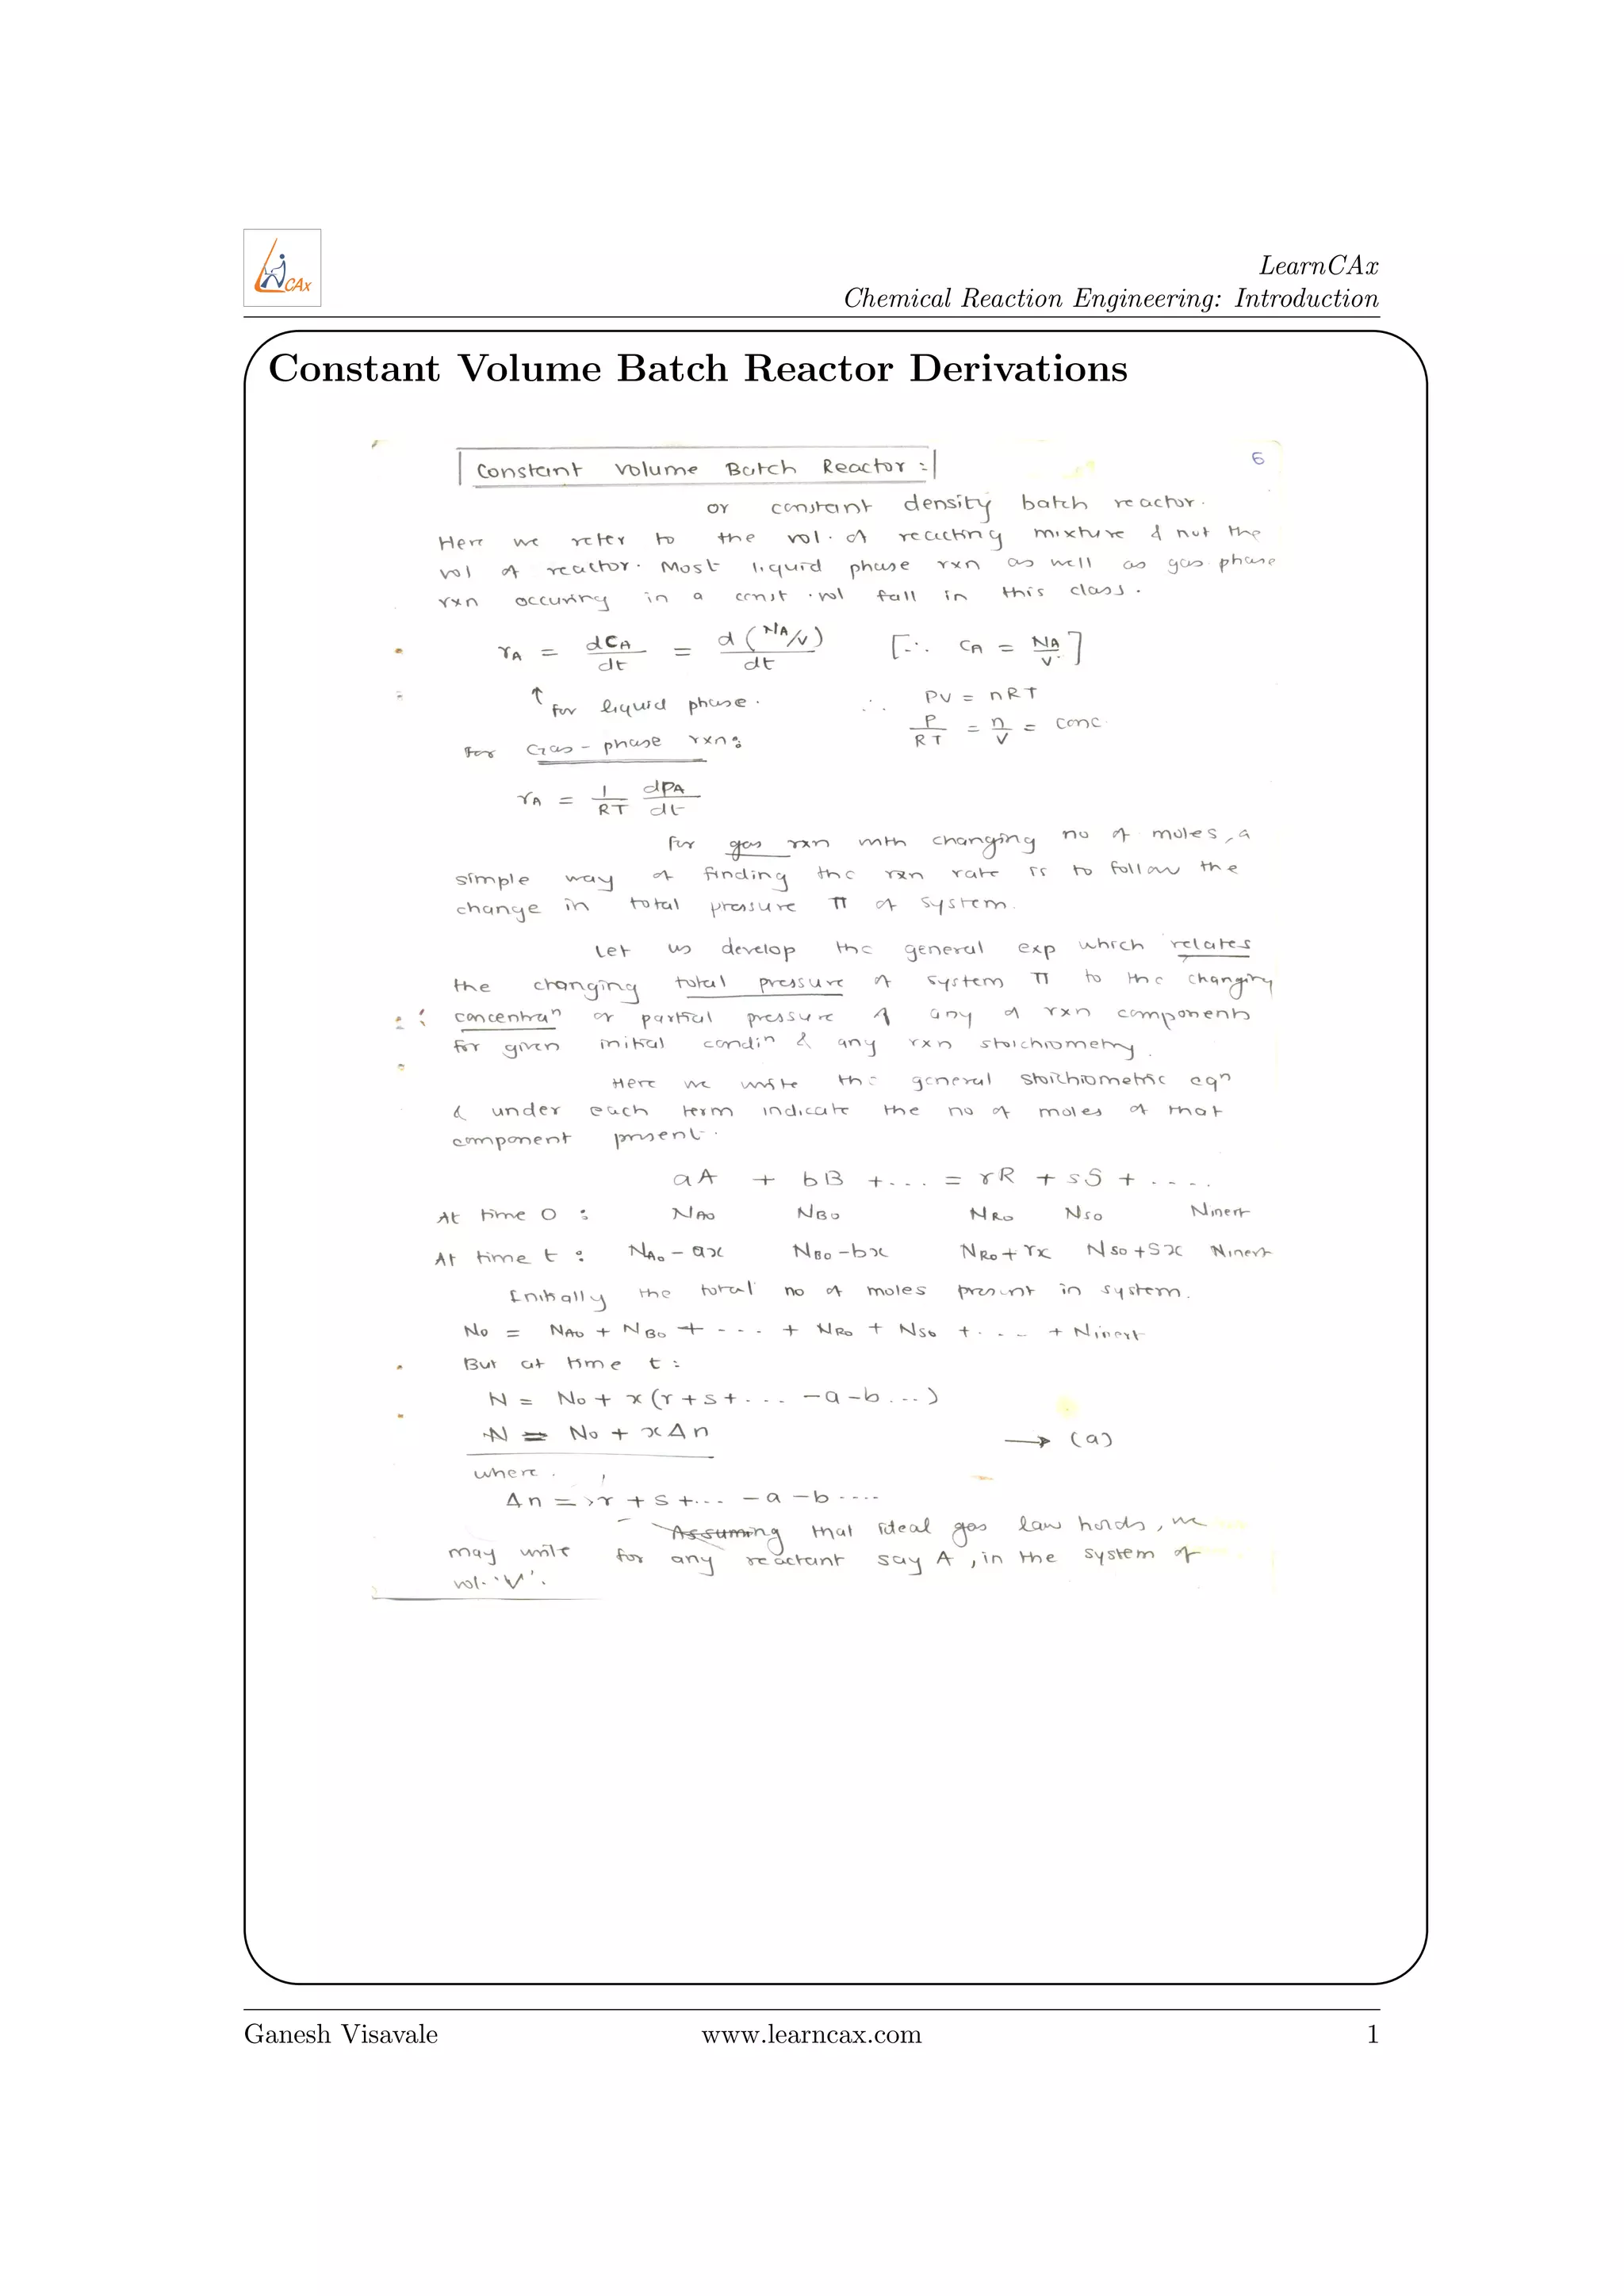 CAx
LearnCAx
Chemical Reaction Engineering: Introduction
Constant Volume Batch Reactor Derivations
Constant Volume Batch Reactor :-
6
or constant density batch reactor.
Here we refer to the vol. of reacting mixture & not the
vol of reactor. Most liquid phase rxn as well as gas phase
rxn occuring in a const. vol fall in this class.
rA = dCA/dt = d(NA/V)/dt [∵ CA = NA/V]
↑ for liquid phase. ∴ PV = nRT
P/RT = n/V = conc.
for Gas-phase rxn:
rA = 1/RT dPA/dt
for gas rxn with changing no of moles, a
simple way of finding the rxn rate is to follow the
change in total pressure π of system.
Let us develop the general exp which relates
the changing total pressure of system π to the changing
concentraⁿ or partial pressure of any of rxn components
for given initial condiⁿ & any rxn stoichiometry.
Here we write the general stoichiometric eqⁿ
& under each term indicate the no of moles of that
component present.
aA + bB + ... = rR + sS + ....
At time 0 : NA0 NB0 NR0 NS0 Ninert
At time t : NA0 - ax NB0 - bx NR0 + rx NS0 + sx Ninert
Initially the total no of moles present in system.
N0 = NA0 + NB0 + --- + NR0 + NS0 + ... + Ninert
But at time t :
N = N0 + x(r + s + ... - a - b ...)
N = N0 + xΔn → (a)
where.
Δn = r + s + ... - a - b ....
Assuming that ideal gas law holds, we
may write for any reactant say A, in the system of
vol. 'V'.
Ganesh Visavale www.learncax.com 1